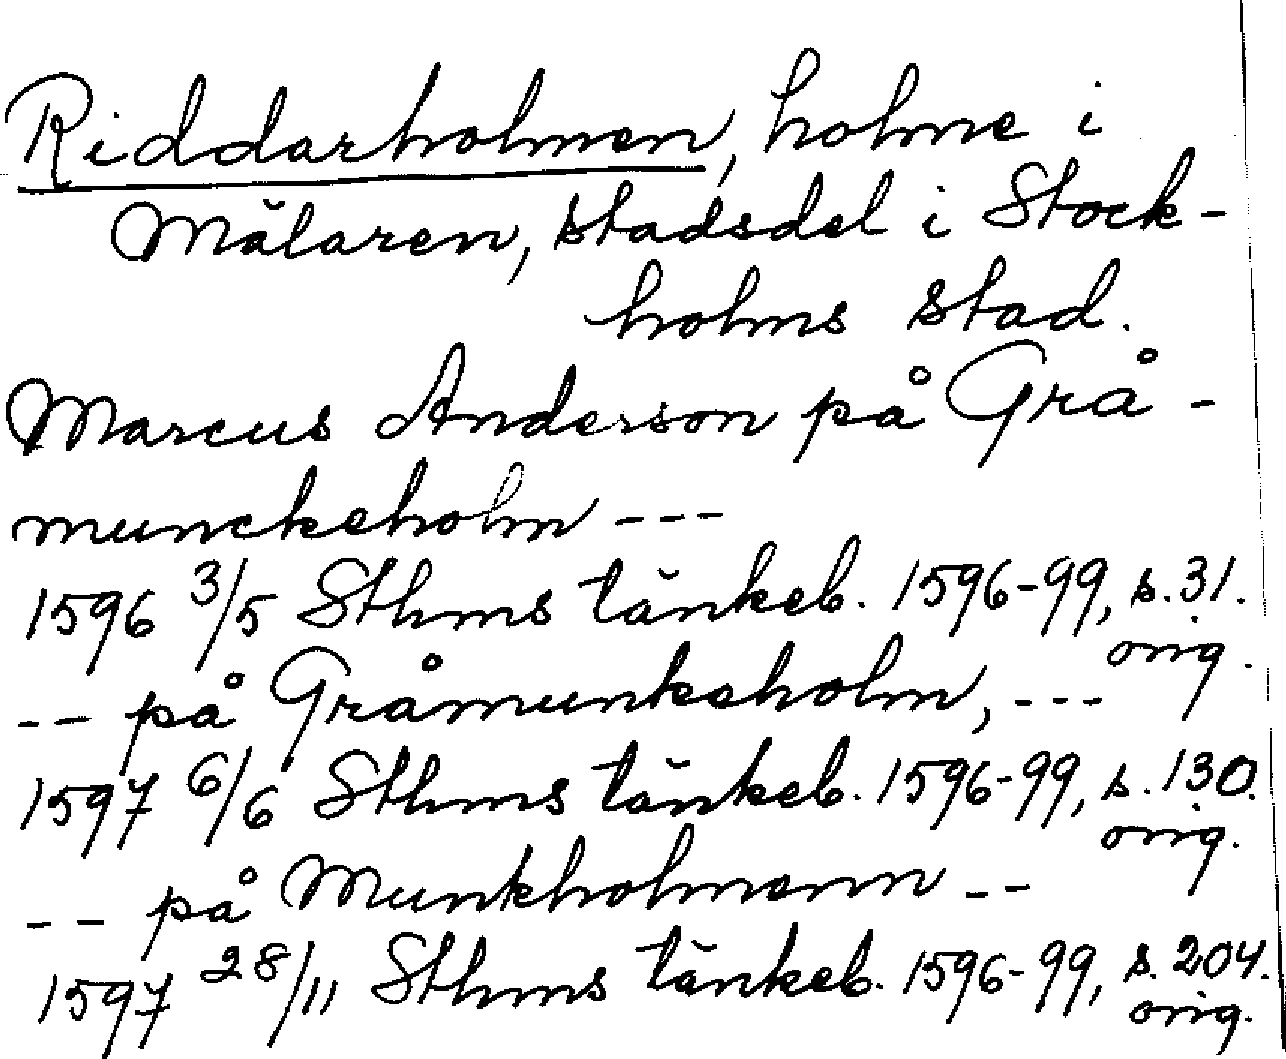 Riddarholmen, holme i
Mälaren, stadsdel i Stock-
holms stad.
Marcus Anderson på Grå-
munckeholm ---
1596 3/5 Sthms tänkeb. 1596-99, s. 31.
orig.
-- på Gråmunkeholm, ---
1597 6/6 Sthms tänkeb. 1596-99, s. 130.
orig.
-- på Munkholmenn --
1597 28/11 Sthms tänkeb. 1596-99, s. 204.
orig.